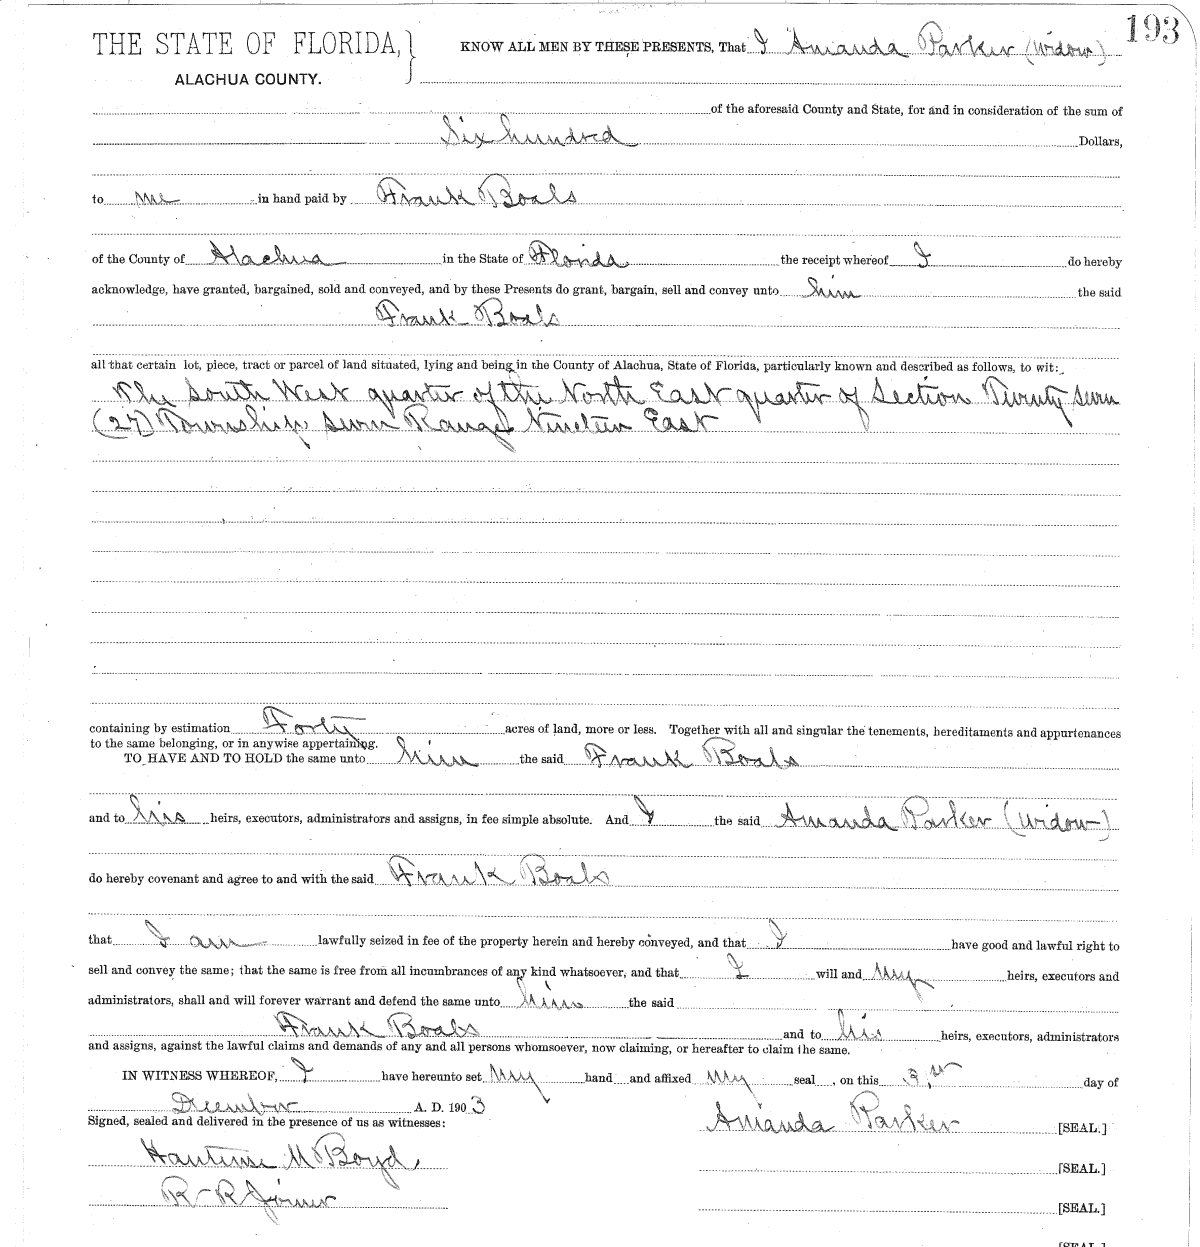 193
THE STATE OF FLORIDA, KNOW ALL MEN BY THESE PRESENTS, That I Amanda Parker (widow)
ALACHUA COUNTY.
of the aforesaid County and State, for and in consideration of the sum of
Six hundred Dollars,
to me in hand paid by Frank Boals
of the County of Alachua in the State of Florida the receipt whereof I do hereby
acknowledge, have granted, bargained, sold and conveyed, and by these Presents do grant, bargain, sell and convey unto him the said
Frank Boals
all that certain lot, piece, tract or parcel of land situated, lying and being in the County of Alachua, State of Florida, particularly known and described as follows, to wit:
The South West quarter of the North East quarter of Section Twenty seven
(27) Township seven Range Nineteen East
containing by estimation Forty acres of land, more or less. Together with all and singular the tenements, hereditaments and appurtenances
to the same belonging, or in anywise appertaining.
TO HAVE AND TO HOLD the same unto him the said Frank Boals
and to his heirs, executors, administrators and assigns, in fee simple absolute. And I the said Amanda Parker (widow)
do hereby covenant and agree to and with the said Frank Boals
that I am lawfully seized in fee of the property herein and hereby conveyed, and that I have good and lawful right to
sell and convey the same; that the same is free from all incumbrances of any kind whatsoever, and that I will and my heirs, executors and
administrators, shall and will forever warrant and defend the same unto him the said
Frank Boals and to his heirs, executors, administrators
and assigns, against the lawful claims and demands of any and all persons whomsoever, now claiming, or hereafter to claim the same.
IN WITNESS WHEREOF, I have hereunto set my hand and affixed my seal , on this 3" day of
December A. D. 1903
Signed, sealed and delivered in the presence of us as witnesses: Amanda Parker [SEAL.]
M Boyd, [SEAL.]
R-R Joiner [SEAL.]